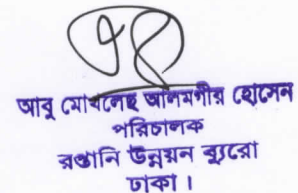 আবু মোখলেছ আলমগীর হোসেন
পরিচালক
রপ্তানি উন্নয়ন ব্যুরো
ঢাকা।